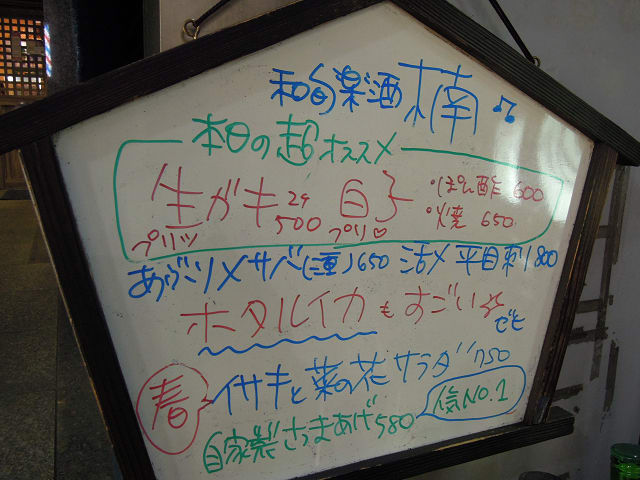 和旬楽酒 楠
本日の超オススメ
生ガキ 2ケ 500 白子 ・ぽん酢 600
プリッ プリ♡ ・焼 650
あぶりメサバ(三重)650 活〆平目刺 1800
ホタルイカもすごい
でモ
春 イサキと菜の花サラダ 750
自家製さつまあげ 580 人気NO.1